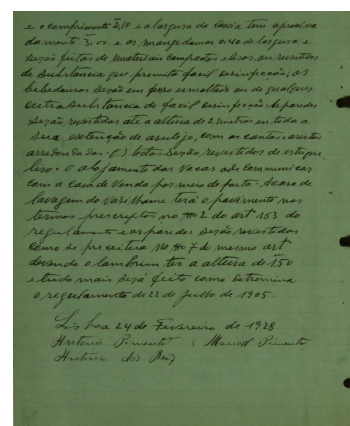 e o comprimento 3,10 e a largura da coxia tem aproxima
damente 3,00 e os mangedouras 0,40 de largura e
serão feitas de materiais compactos e lisos, ou revestidos
de substancia que premita facil desinfecção; os
bebedouros serão em fero esmaltado ou de qualquer
outra substancia de facil desinfecção. As paredes
serão revestidas até a altura de 2 metros em toda a
sua extenção de asulejo, com os cantos e arestas
arredondadas. Os tetos serão revestidos de estuque
liso. O alojamento das vacas ade communicar
com a casa de venda por meio de porta. A casa de
lavagem do vasilhame terá o pavimento nos
termos prescriptos no Nº 2 do art 153 do
regulamento e as paredes serão revestidas
como se preceitua no Nº 7 do mesmo art
devendo o lambrim ter a altura de 1,50
e tudo mais será feito como determina
o regulamento de 22 de Julho de 1905.
Lisboa 24 de Fevereiro de 1928
Antonio Pimenta & Manoel Pimenta
Antonio dos Reis